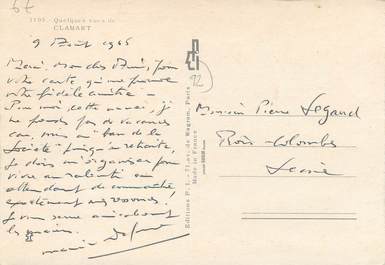 67
3195. Quelques vues de
CLAMART
9 Août 1965
Merci, mon cher Ami, pour
votre carte qui me prouve
votre fidèle amitié —
Pour moi, cette année, je
ne prends pas de vacances
car, mis au ban de la
Société jusqu'à retraite,
Je dois m'organiser pour
vivre au ralenti en
attendant de connaître
exactement mes revenus.
Je vous serre amicalement
les mains.
92
Editions P. I. - 31, av. de Wagram, Paris
Made in France
Monsieur Pierre Legaud
Bois-Colombes
Seine